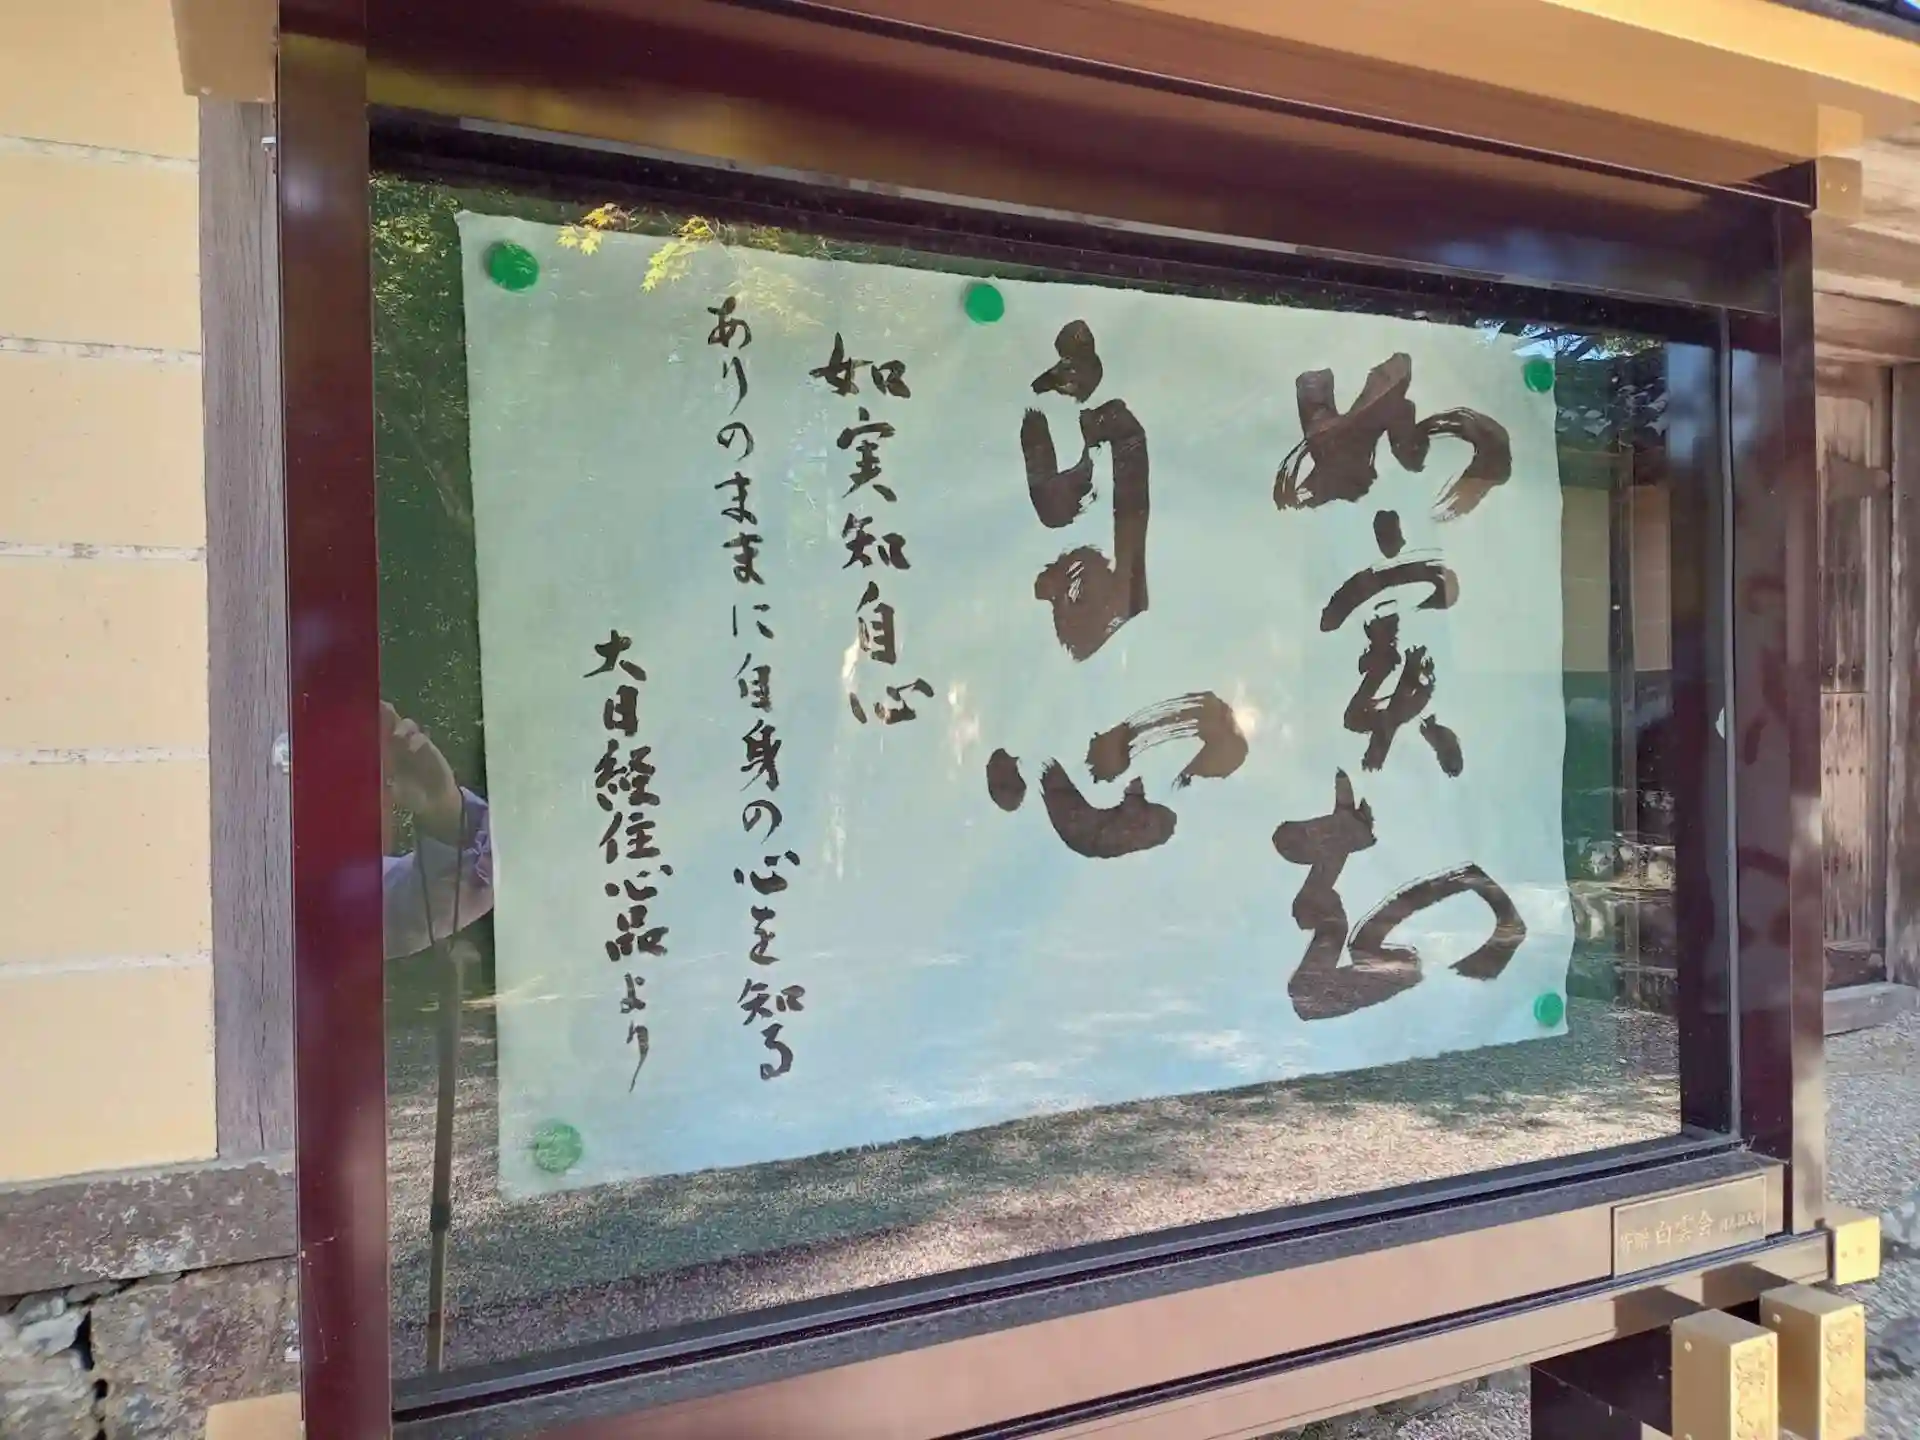 如実知
自心
如実知自心
ありのままに自身の心を知る
大日経住心品より
白雲会